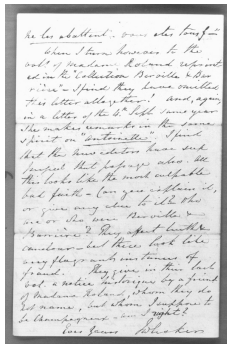 ne les abattent. vous etes tous f—"
When I turn however to the
vol. of Madam. Roland reprint
ed in the "Collection Berville & Bar
rière" I find they have omitted
this letter altogether! And, again
in a letter of the 4th Sept. same year
she makes remarks in the same
spirit on I find
that the new editors have sup
pressed that passage also. All
this looks like the most culpable
bad faith – can you explain it,
or give any clue to it? Who
are or who were Berville &
Barrière? They affect truth &
candour – but these look like
very flagrant instances of
fraud. They give in this last
vol. a notice historique by a friend
of Madame Roland, whom they do
not name, but whom I suppose to
be Champagneux – am I right?
Ever yours